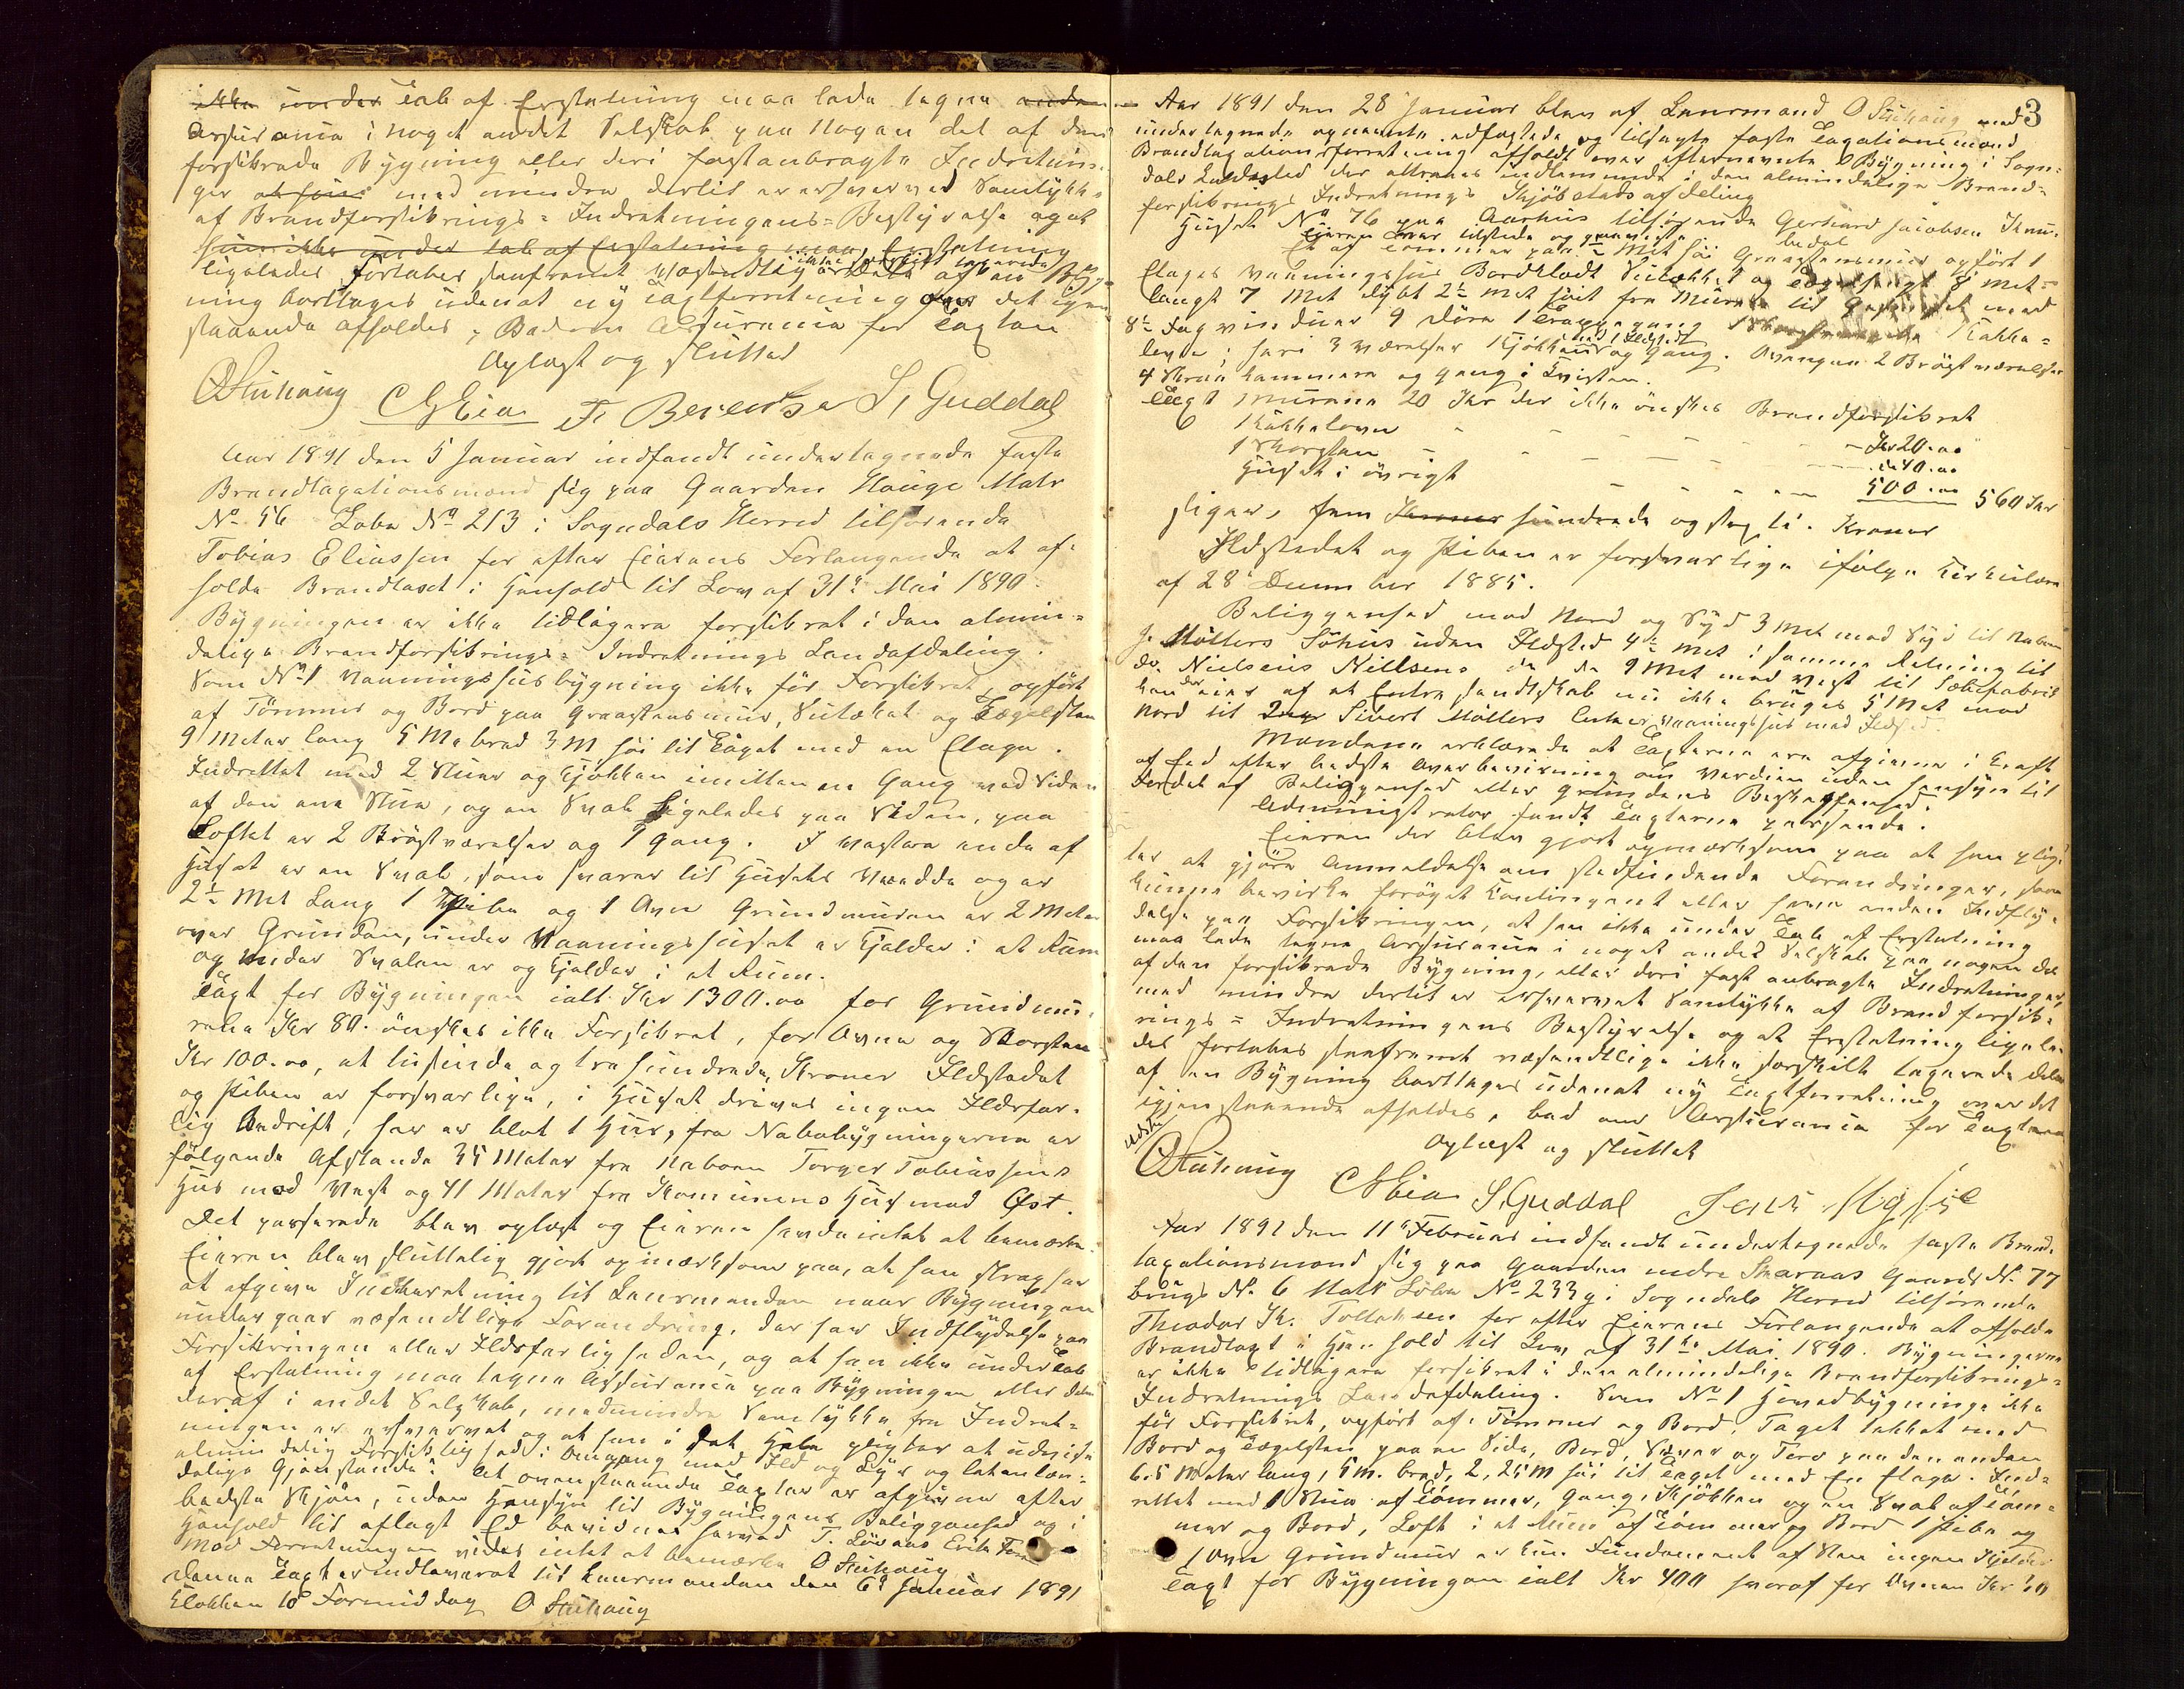 ikke under Tab af Erstatning maa lade tegne anden
Assurance i noget andet Selskab paa Nogen del af den
forsikrede Bygning eller deri fastanbragte Indretnin-
ger med mindre dertil er erhvervet Samtykke
af Brandforsikrings-Indretningens Bestyrelse og at
han ikke under tab af Erstatning maa Erstatning
ligeledes fortabes saafremt væsentlig ikke særskilt taxerede dele af en Byg-
ning borttages udenat ny Taxtforretning over det igjen
staaende afholdes, Bad om Assurance for Taxten
Oplæst og sluttet
O Stuhaug C Eia F. Berentsen S, Guddal
Aar 1891 den 5 Januar indfandt undertegnede faste
Brandtaxationsmænd sig paa Gaarden Hauge Matr
No 56 Løbe No 213 i Sogndals Herred tilhørende
Tobias Eliassen for efter Eierens Forlangende at af-
holde Brandtaxt i Henhold til Lov af 31te Mai 1890.
Bygningen er ikke tidligere forsikret i den almin-
delige Brandforsikrings-Indretnings Landafdeling.
Som No 1 Vaaningshusbygning ikke før Forsikret, opført
af Tømmer og Bord paa Graastensmur, Sutækket og Tægelsten
9 Meter lang 5 Me bred 3 M høi til Taget med en Etage.
Indrettet med 2 Stuer og Kjøkken imellem en Gang ved Siden
af den ene Stue, og en Sval ligeledes paa Siden, paa
Loftet er 2 Brøstværelser og 1 Gang. I vestre ende af
Huset er en Sval, som svarer til Husets Bredde og er
2½ Met Lang 1 Pibe og 1 Ovn Grundmuren er 2 Meter
over Grunden, under Vaaningshuset er Kjelder i et Rum
og under Svalen er og Kjelder i et Rum.
Taxt for Bygningen ialt Kr 1300.00 for Grundmu-
ren Kr 80. ønskes ikke Forsikret, for Ovne og Skorsten
Kr 100.00, et tusinde og tre hundrede Kroner Ildstedet
og Piben er forsvarlige, i Huset drives ingen Ildsfar-
lig Bedrift, her er blot 1 Hus, fra Nabobygningerne er
følgende Afstande 35 Meter fra Naboen Torger Tobiassens
Hus mod Vest og 41 Meter fra Komunens Hus mod Øst.
Det passerede blev oplæst og Eieren havde intet at bemærke.
Eieren blev sluttelig gjort opmærksom paa, at han strax har
at afgive Indberetning til Lensmanden naar Bygningen
undergaar væsendtlige Forandring, der har Indflydelse paa
Forsikringen eller Ildsfarligheden, og at han ikke under Tab
af Erstatning maa tegne Assurance paa Bygningen eller dele
deraf i andet Selskab, medmindre Samtykke fra Indret-
ningen er erhvervet og at han i det Hele pligter at udvise
almindelig Forsiktighed i Omgang med Ild og Lys og letantæn-
delige Gjenstande. At ovenstaaende Taxter er afgivne efter
bedste Skjøn, uden Hensyn til Bygningens Beliggenhed og i
Henhold til aflagt Ed bevidnes herved T. Løvaas Erik
Mod Forretningen vides intet at bemærke O Stuhaug
Denne Taxt er indleveret til Lensmanden den 6te Januar 1891
Klokken 10 Formiddag O Stuhaug
3
Aar 1891 den 28 Januar blev af Lensmand O Stuhaug med
undertegnede opnævnte edfæstede og tilsagte faste Taxationsmænd
Brandtaxationsforretning afholdt over efternævnte Bygning i Sogn-
dals Ladested der attraaes indlemmede i den almindelige Brand-
forsikrings Indretnings Kjøbstadsafdeling
Huset No 76 paa Aarhus tilhørende Gerhard Jacobsen
Eieren var tilstede og
Et af Tømmer paa ½ Met høi Graastensmur opført 1
Etages Vaaningshus Bordklædt Sutækket og Tægelhengt 8 met-
langt 7 Met dybt 2½ met høit fra Muren til Gesimset med
8½ Fag vinduer 9 Døre 1 Trappegang 1 Kakke-
lovn; heri 3 Værelser Kjøkken med 1 Ildsted og Gang. Ovenpaa 2 Brøstværelser
4 Skraa kammere og gang i Kvisten.
Taxt Murene 20 Kr der ikke ønskes Brandforsikret
1 Kakkelovn Kr 20.00
1 Skorsten 40.00
Huset i øvrigt 500.00 560 Kr
siger, fem hundrede og sexti. Kroner
Ildstedet og Piben er forsvarlige ifølge Cirkulære
af 28 December 1885.
Beliggenhed mod Nord og Syd 3 met mod Syd til Naboen
J. Møllers Søhus uden Ildsted 4½ met i samme Retning til
do. Nielseus Nillsens do do 9 Met mod Vest til Sæbefabrik
han der eier af et Entreselskab nu ikke bruges 5 Met mod
Nord til Sivert Møllers Enkes Vaaningshus med Ildsted.
Mændene erklærede at Taxterne ere afgivne i Kraft
af Ed efter bedste Overbevisning om Værdien uden Hensyn til
Fordel af Beliggenhed eller Grundens Beskaffenhed.
Administrator fandt Taxterne passende.
Eieren der blev gjort opmærksom paa at han plig-
ter at gjøre Anmeldelse om stedfindende Forandringer, som
kunne bevirke forøget Contingent eller have anden Indfly-
delse paa Forsikringen, at han ikke under Tab af Erstatning
maa lade tegne Assurance i noget andet Selskab paa nogen del
af den forsikrede Bygning, eller deri fast anbragte Indretninger,
med mindre dertil er erhvervet Samtykke af Brandforsik-
rings-Indretningens Bestyrelse og at Erstatning ligele-
des fortabes saafremt væsendtlige ikke særskilt taxerede dele
af en Bygning borttages udenat ny Taxtforretning over det
igjenstaaende afholdes, bad om Assurance for Taxten
Oplæst og sluttet
O Stuhaug C Eia S. Guddal
Aar 1891 den 11te Februar indfandt undertegnede faste Brand-
taxationsmænd sig paa Gaarden indre Skaraas Gaards No. 77
brugs No. 6 Matr Løbe No 233 g i Sogndals Herred tilhørende
Theodor K. Tollaksen for efter Eierens Forlangende at afholde
Brandtaxt i Henhold til Lov af 31te Mai 1890. Bygningerne
er ikke tidligere forsikret i den almindelige Brandforsikrings-
Indretnings Landafdeling. Som No 1 Hovedbygninge ikke
før Forsikret, opført af Tømmer og Bord, Taget tækket med
Bord og Tægelsten paa en Side, Bord, Næver og Torv paa den anden
6.5 Meter lang, 5 m. bred, 2,25 M høi til Taget med En Etage. Ind-
rettet med 1 Stue af Tømmer, Gang, Kjøkken og en Sval af Tøm-
mer og Bord, Loft i et Rum af Tømmer og Bord 1 Pibe og
1 Ovn Grundmur er kun Fundament af Sten ingen Kjelder
Taxt for Bygningen ialt Kr 400 hvoraf for Ovnen Kr